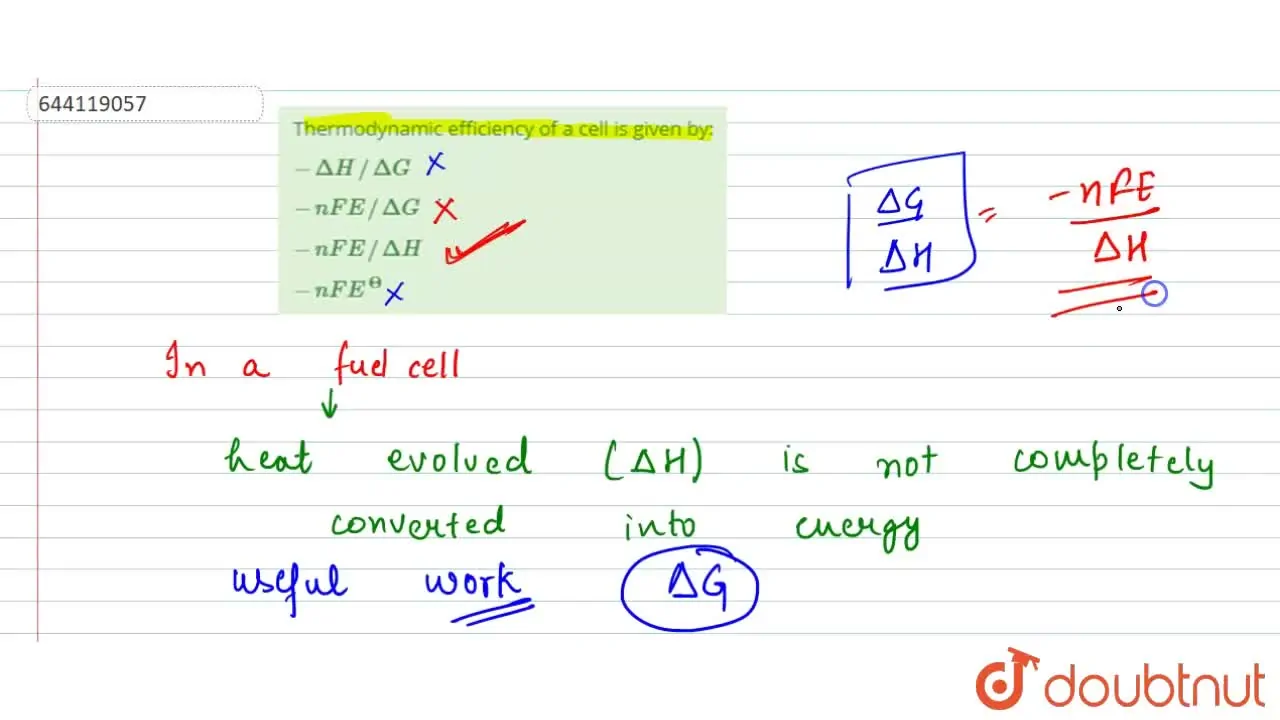 644119057
Thermodynamic efficiency of a cell is given by:
−ΔH / ΔG X
−nFE / ΔG X
−nFE / ΔH ✓
−nFE^Θ X
ΔG / ΔH = −nFE / ΔH
In a fuel cell
↓
heat evolved (ΔH) is not completely
converted into energy
useful work ΔG
doubtnut